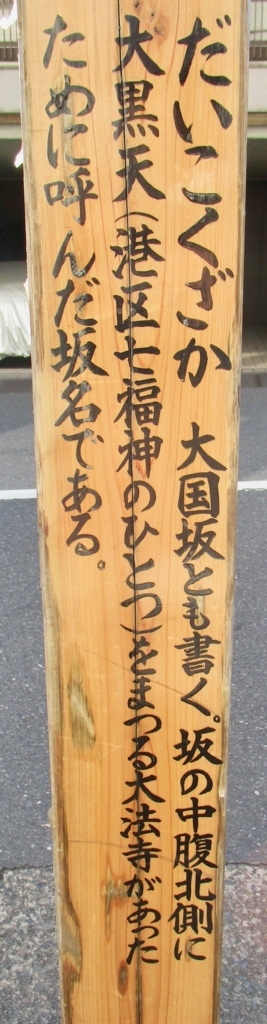 だいこくざか 大国坂とも書く。坂の中腹北側に
大黒天(港区七福神のひとつ)をまつる大法寺があった
ために呼んだ坂名である。